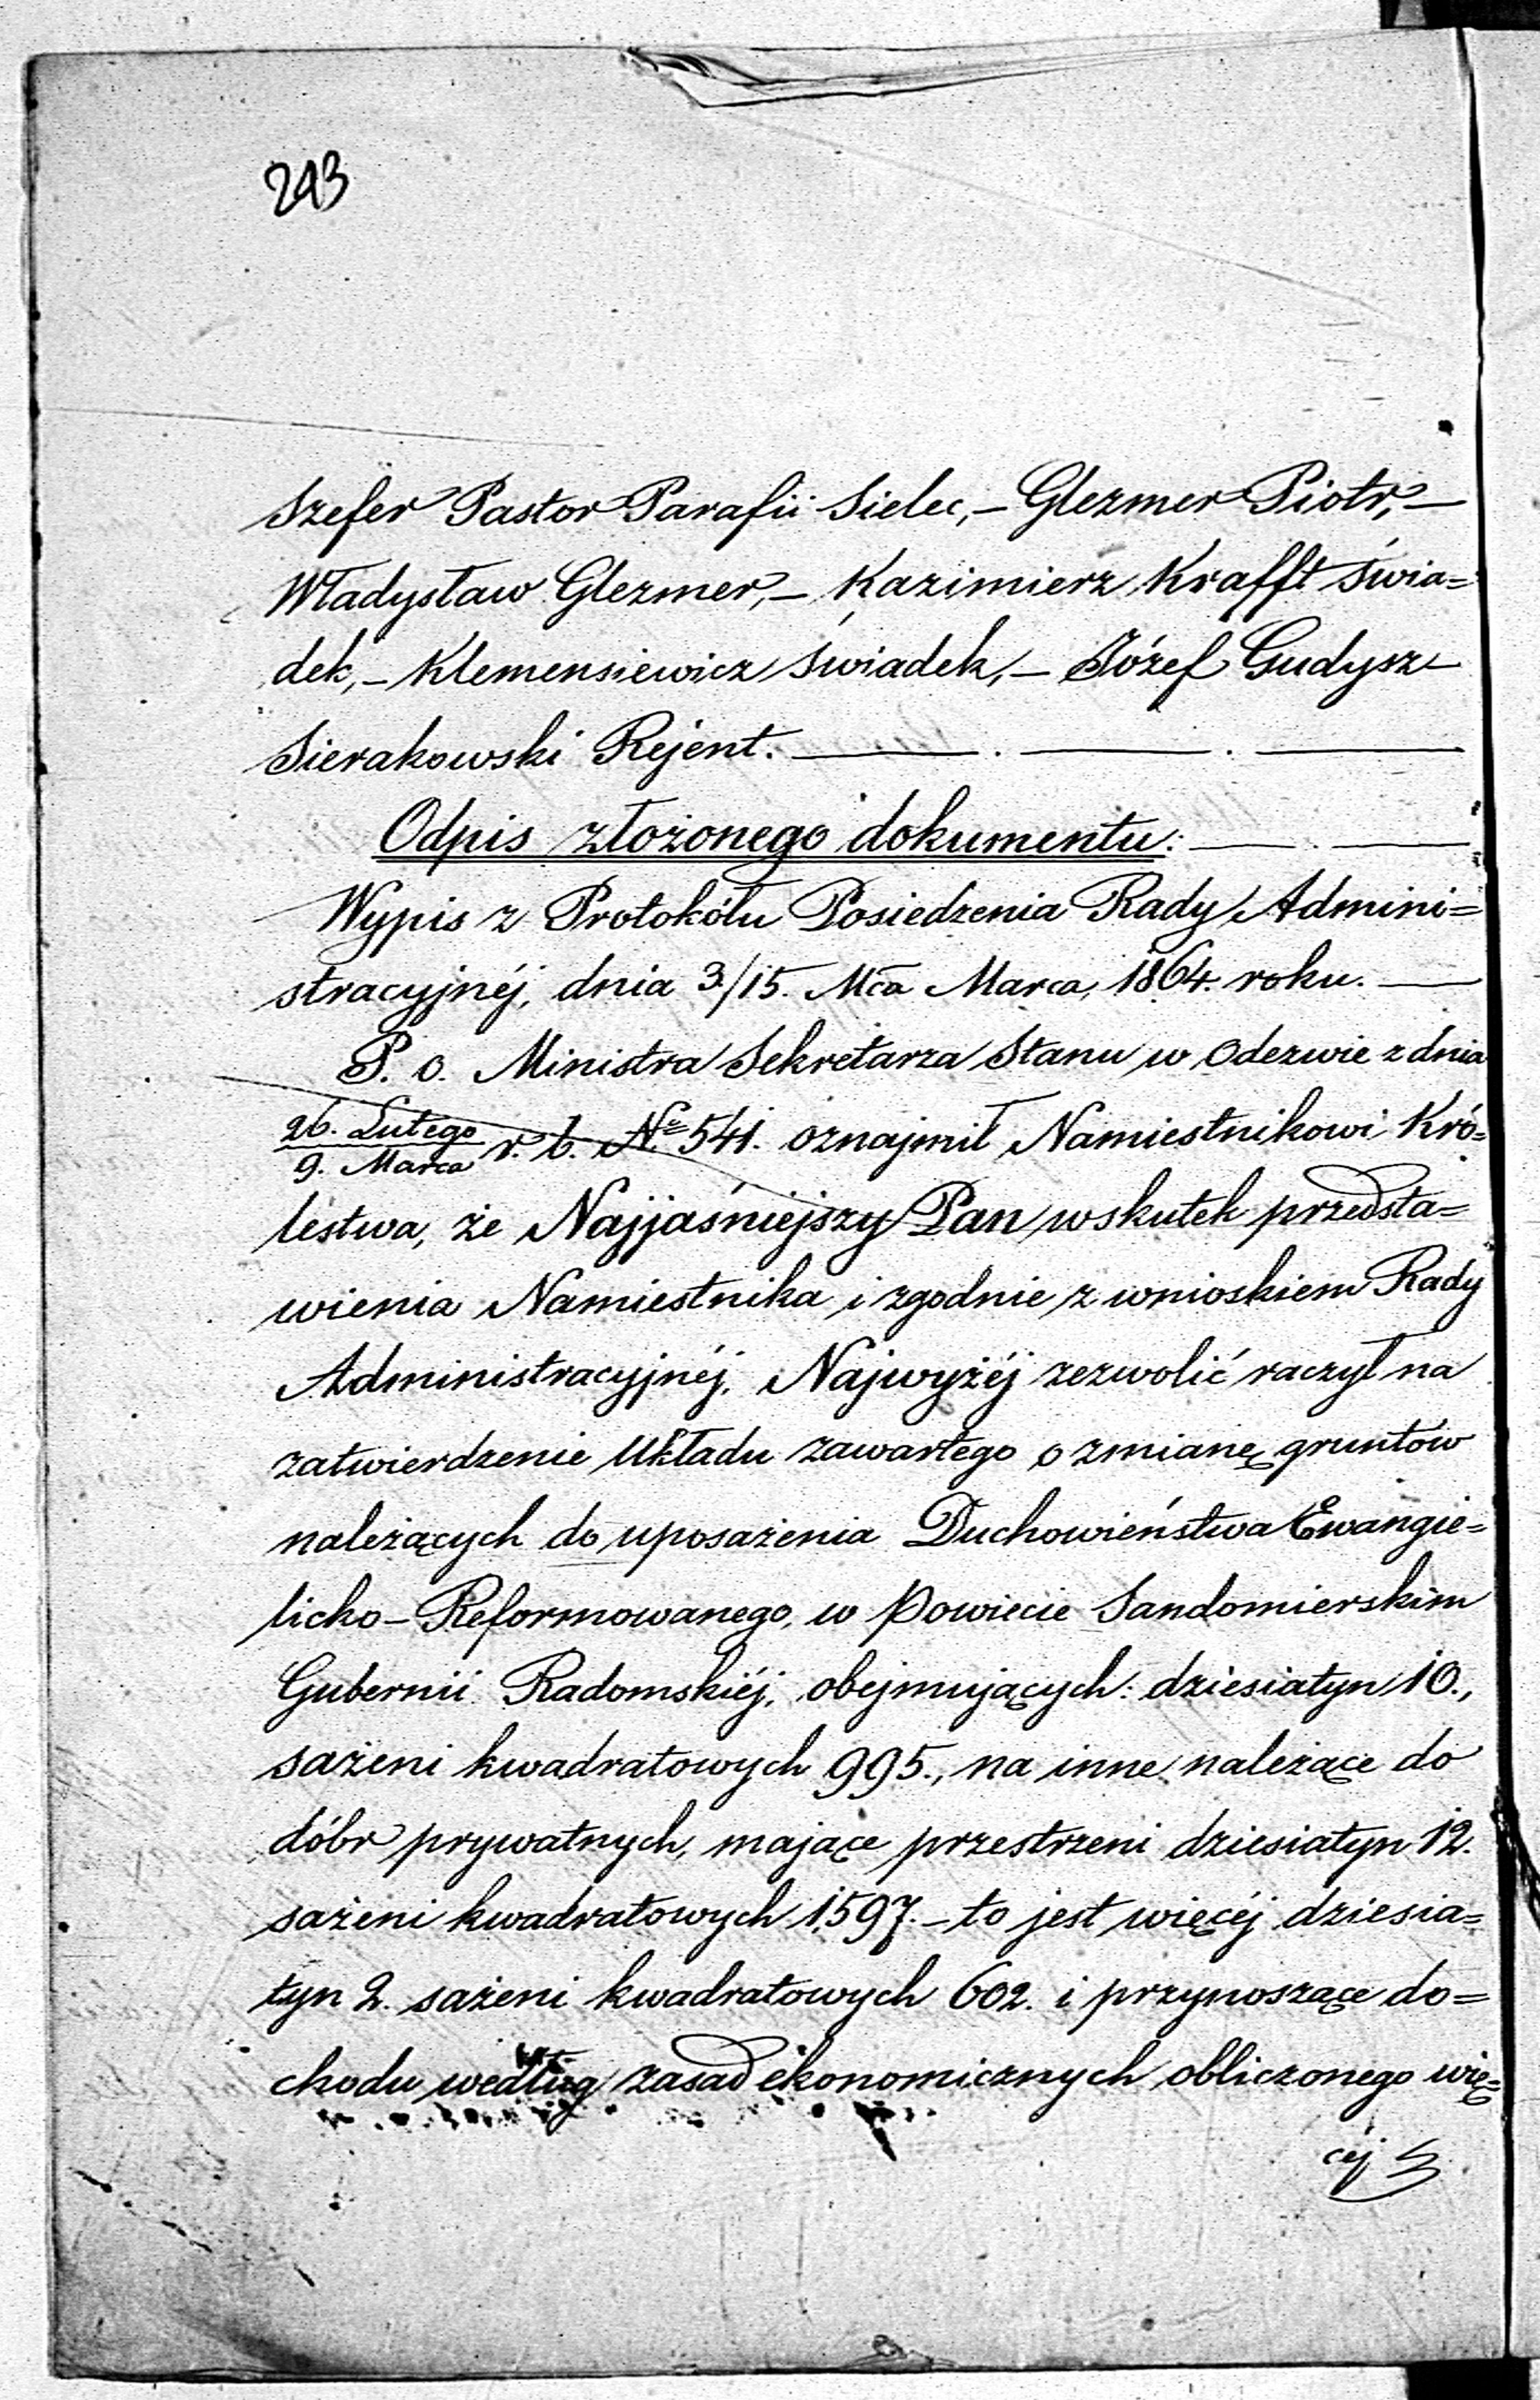 293
Szefer Pastor Parafii Sielec,– Glezmer Piotr,–
Władysław Glezmer,– Kazimierz Krafft świa=
dek,– Klemensiewicz świadek,– Józef Gudysz–
Sierakowski Rejent. ——— . ——— . ———
Odpis złożonego dokumentu: ——— . ———
Wypis z Protokółu Posiedzenia Rady Admini=
stracyjnéj, dnia 3/15. Mca Marca, 1864. roku. ——
P. o. Ministra Sekretarza Stanu w Odezwie z dnia
26. Lutego / 9. Marca r. b. Nr 541. oznajmił Namiestnikowi Kró=
lestwa, że Najjaśniejszy Pan wskutek przedsta=
wienia Namiestnika i zgodnie z wnioskiem Rady
Administracyjnéj, Najwyżéj zezwolić raczył na
zatwierdzenie Układu zawartego o zmianę gruntów
należących do uposażenia Duchowieństwa Ewangie=
licko–Reformowanego, w Powiecie Sandomierskim
Gubernii Radomskiéj, obejmujących: dziesiatyn 10.,
sażeni kwadratowych 995., na inne należące do
dóbr prywatnych, mające przestrzeni dziesiatyn 12.
sażeni kwadratowych 1,597.– to jest więcéj dziesia=
tyn 2. sażeni kwadratowych 602. i przynoszące do=
chodu według zasad ekonomicznych obliczonego wię=
céj